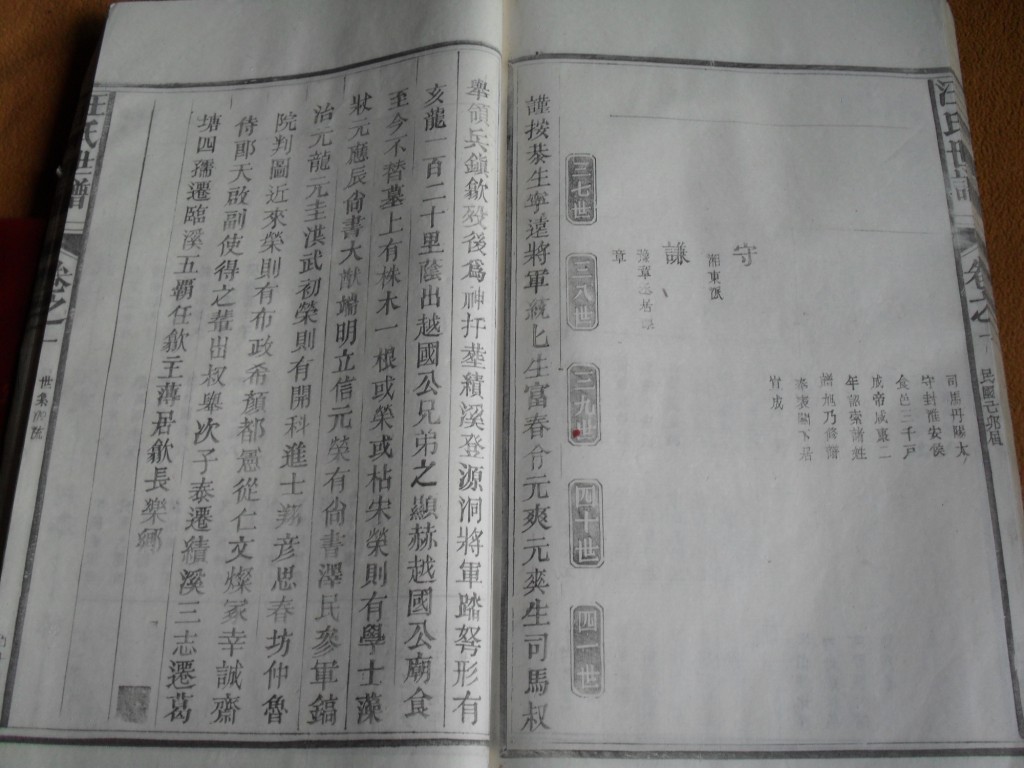 汪氏世譜
卷之一
民國己卯
守
湘東派
謙
章
司馬丹陽太
守封淮安侯
食邑三千戶
成帝咸
三七世
三八世
三九世
四十世
四一世
謹按恭生寧遠將軍統七生富春令元爽元爽生司馬叔
舉領兵鎮歙歿後爲神扞塟績溪登源洞將軍踏弩形有
亥龍一百二十里蔭出越國公兄弟之顯赫越國公廟食
至今不替墓上有株木一根或榮或枯宋榮則有學士藻
狀元應辰尙書大猷端明立信元榮有尙書澤民參軍鎬
治元龍元圭洪武初榮則有開科進士彥思春坊仲魯
院判圖近來榮則有布政希顏都憲從仁文燦家幸誠齋
侍郎天啟副使得之輩出叔舉次子泰遷績溪三志遷葛
塘四孺遷臨溪五覇任歙主薄居歙長樂鄉
汪氏世譜
卷之一
世系